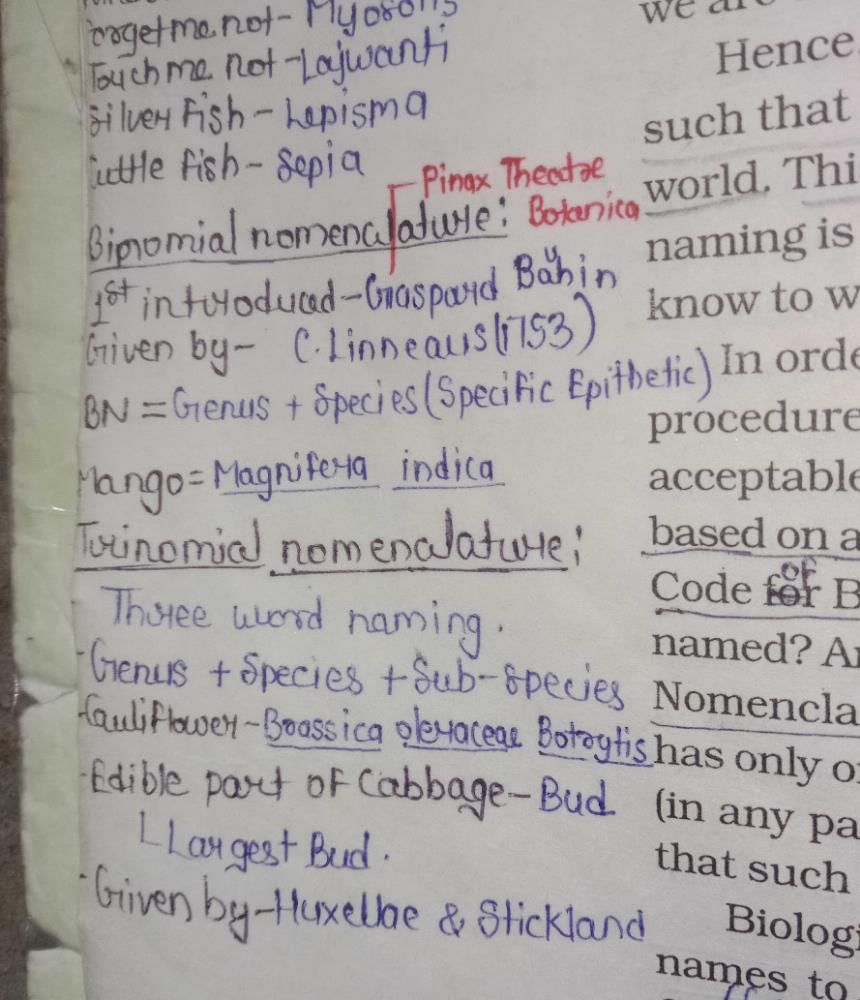 Forget me not - Myosotis
Touch me not - Lajwanti
Silver Fish - Lepisma
Cuttle Fish - Sepia
Pinax Theatre
Botanica
Binomial nomenclature:
1st introduced - Gaspard Bauhin
Given by - C. Linneaus (1753)
BN = Genus + Species (Specific Epithetic)
Mango = Magnifera indica
Trinomial nomenclature:
Three word naming.
- Genus + Species + Sub-species
- Cauliflower - Brassica oleraceae Botrytis
- Edible part of Cabbage - Bud
Largest Bud.
- Given by - Huxellae & Stickland
we are
Hence
such that
world. Thi
naming is
know to w
In orde
procedure
acceptable
based on a
of
Code for B
named? A
Nomencla
has only o
(in any pa
that such
Biologi
names to